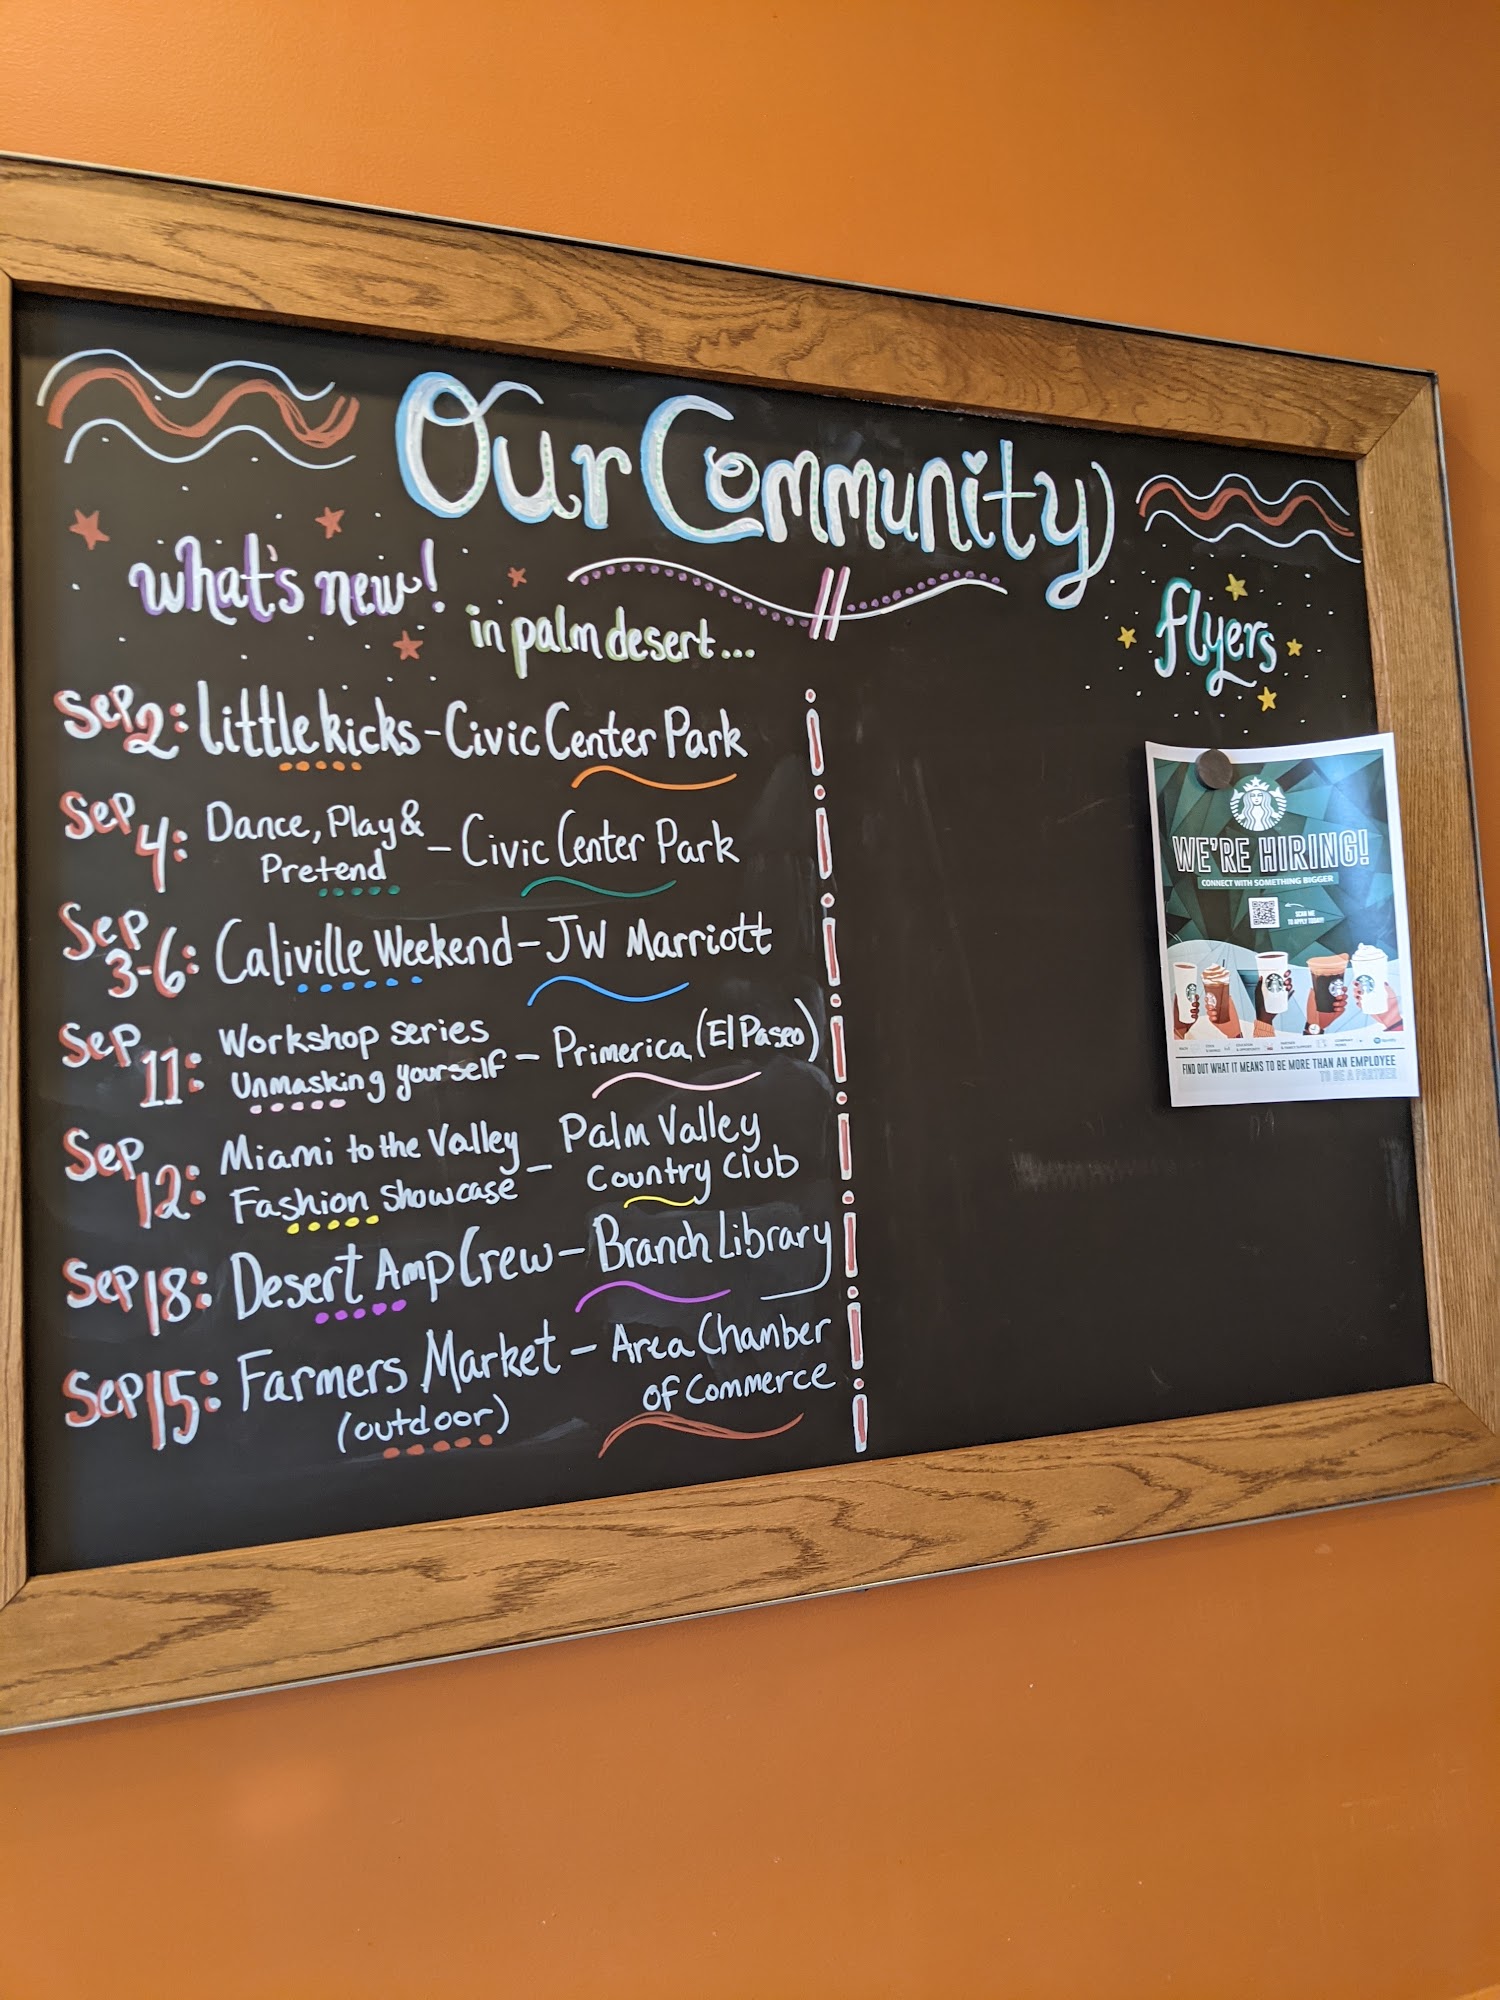 Our Community
what's new!
in palm desert...
flyers
Sep 2: Little kicks - Civic Center Park
Sep 4: Dance, Play & Pretend - Civic Center Park
Sep 3-6: Caliville Weekend - JW Marriott
Sep 11: Workshop series Unmasking yourself - Primerica (El Paseo)
Sep 12: Miami to the Valley Fashion showcase - Palm Valley Country Club
Sep 18: Desert Amp Crew - Branch Library
Sep 15: Farmers Market (outdoor) - Area Chamber of Commerce
WE'RE HIRING!
CONNECT WITH SOMETHING BIGGER
SCAN ME
TO APPLY TODAY!
FIND OUT WHAT IT MEANS TO BE MORE THAN AN EMPLOYEE
TO BE A PARTNER